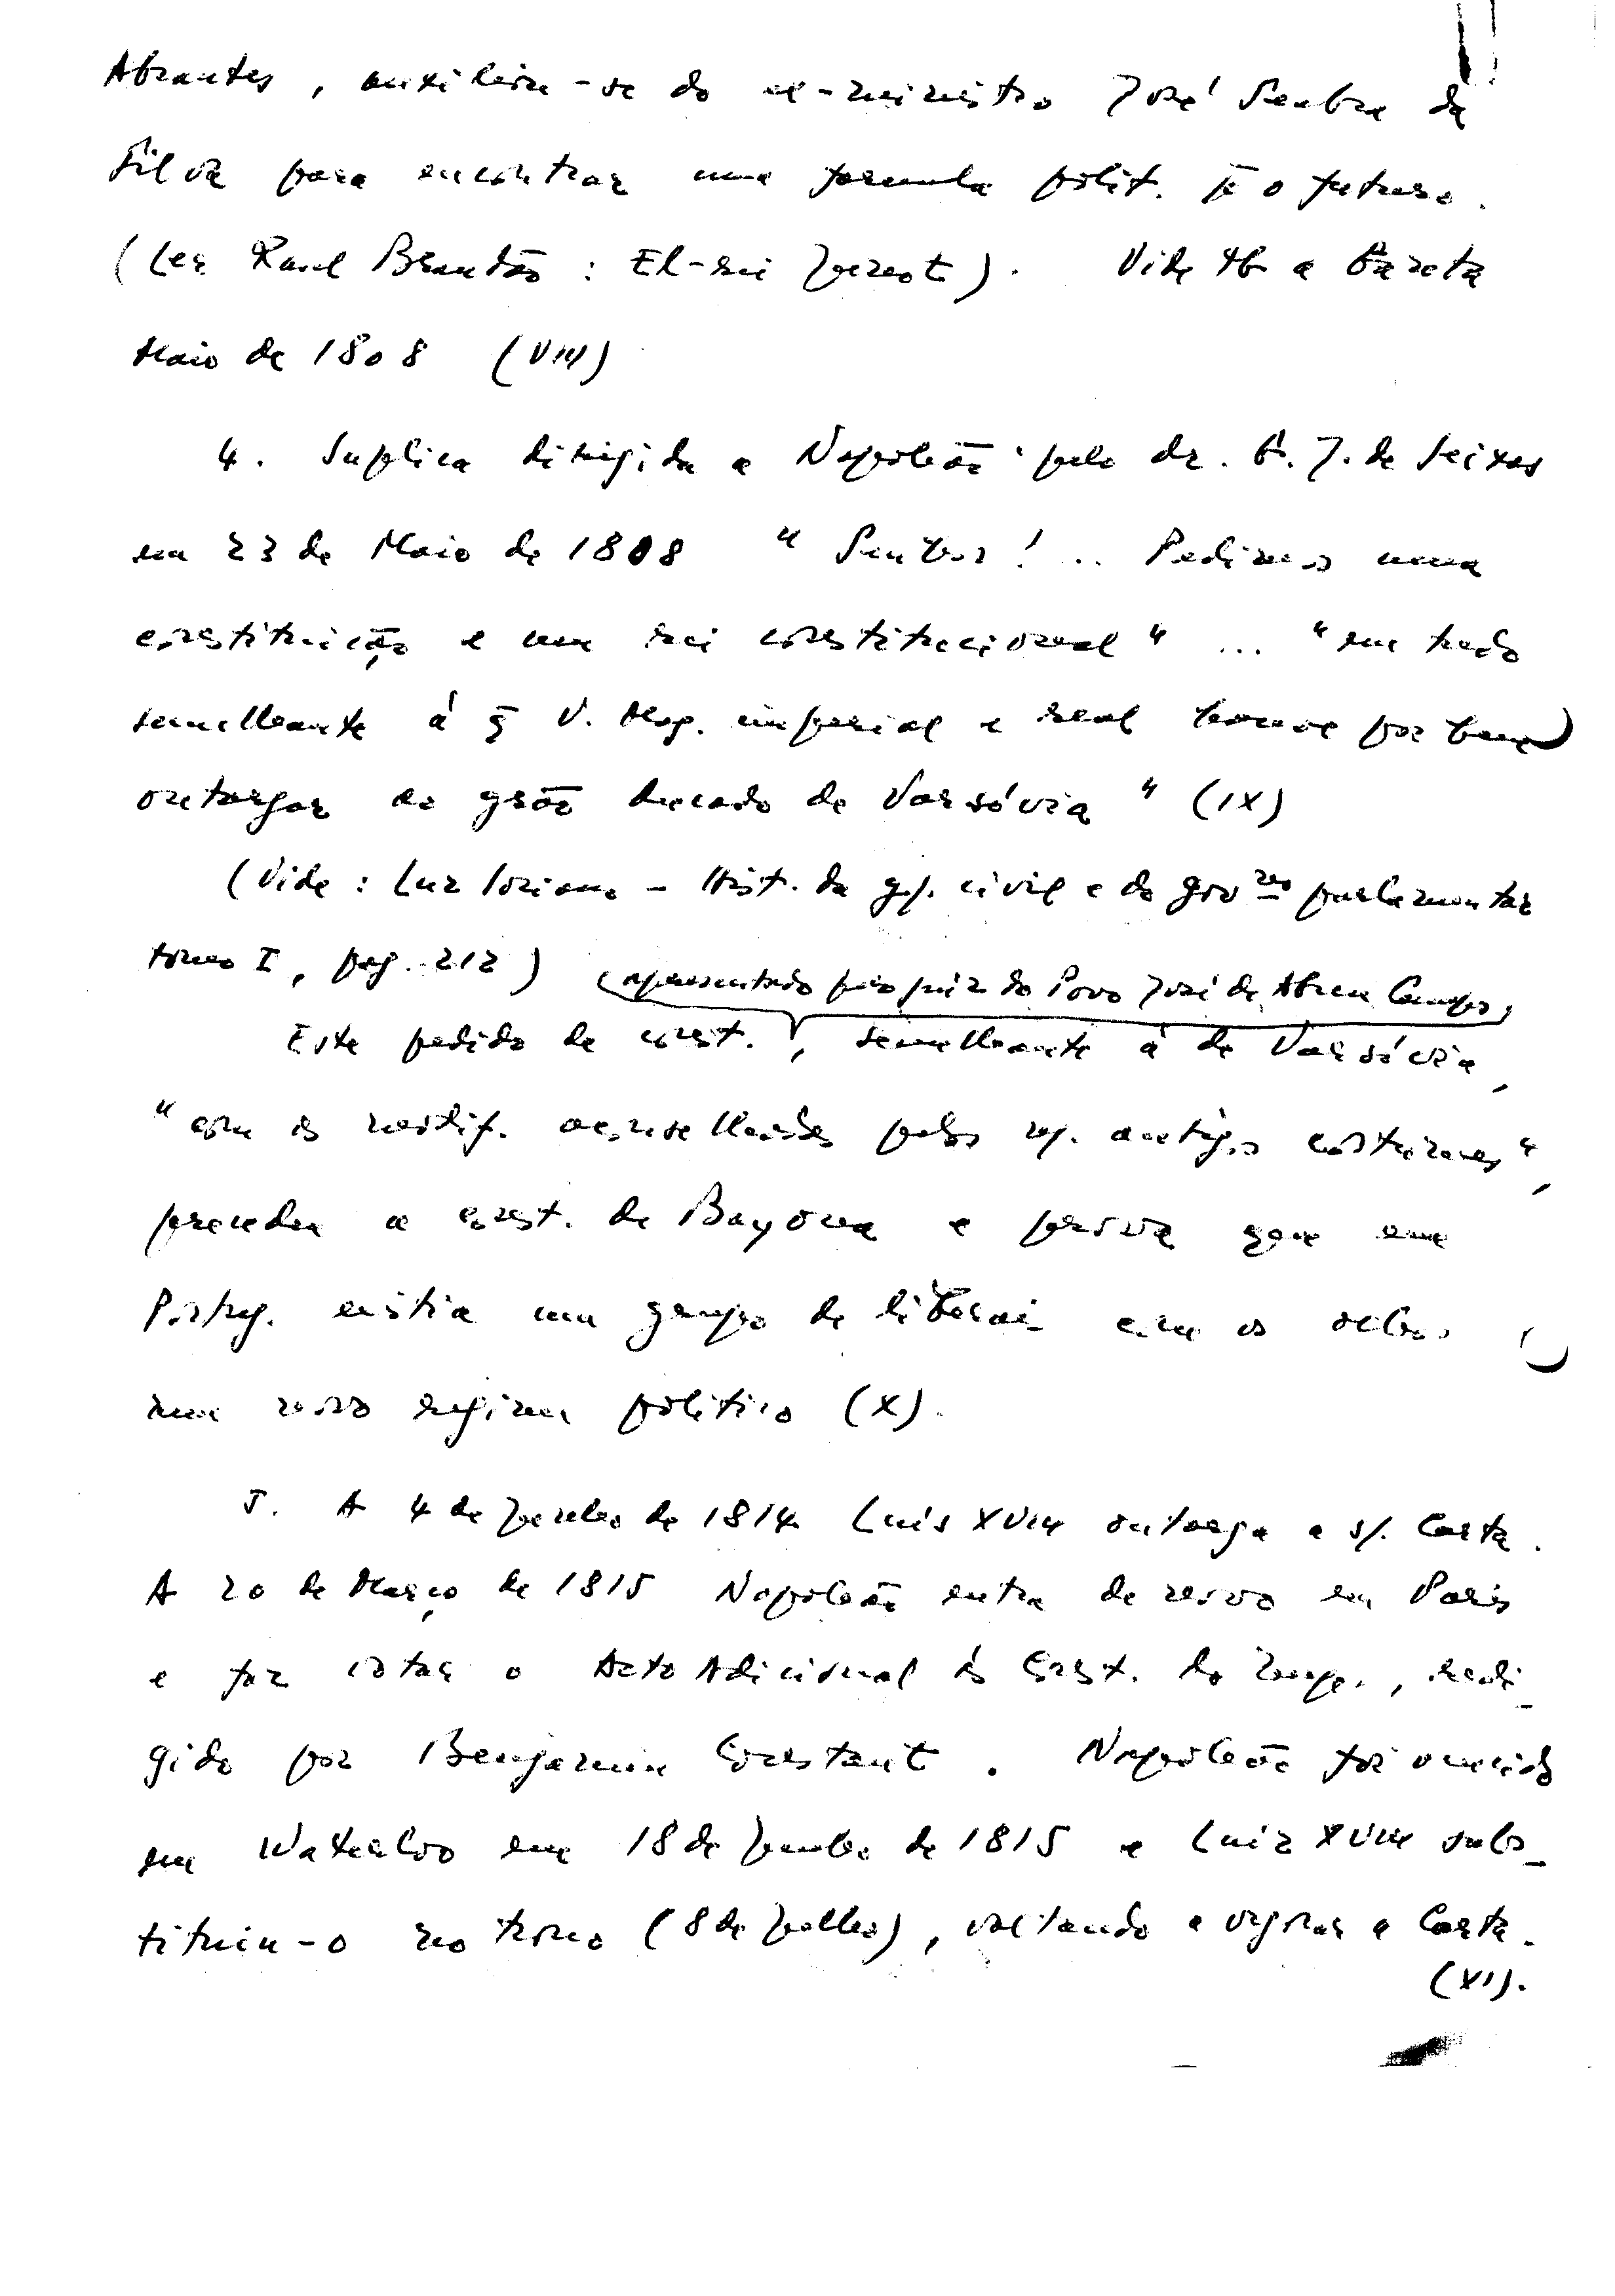 Abrantes, auxiliou-se do ex-ministro José Seabra da
Silva para encontrar uma formula polit. p̄ o futuro.
(Ler Raul Brandão : El-rei Junot). Vide tb a Gazeta
Maio de 1808 (VIII)
4. Suplica dirigida a Napoleão pelo dr. G. J. de Seixas
em 23 de Maio de 1808 "Senhor!.. Pedimos uma
constituição e um rei constitucional" ... "em tudo
semelhante á q̄ V. Mag. imperial e real houve por bem
outorgar ao grão ducado de Varsóvia" (IX)
(Vide : Luz Soriano - Hist. da g. civil e do gov no parlamentar
tomo I, pag. 212) (apresentado pelo juiz do Povo José de Abreu Campos,
Este pedido de const., semelhante á de Varsóvia,
"com as modif. aconselhadas pelos resp. antigos costumes",
precedeu a const. de Bayona e prova que em
Portug. existia um grupo de liberais com os olhos
num novo regimen politico (X).
5. A 4 de Junho de 1814 Luís XVIII outorga a s/. Carta.
A 20 de Março de 1815 Napoleão entra de novo em Paris
e faz votar o Acto Adicional ás Const. do Impe., redi-
gido por Benjamin Constant. Napoleão foi vencido
em Waterloo em 18 de Junho de 1815 e Luiz XVIII subs-
tituiu-o no trono (8 de Julho), voltando a vigorar a Carta.
(XI).